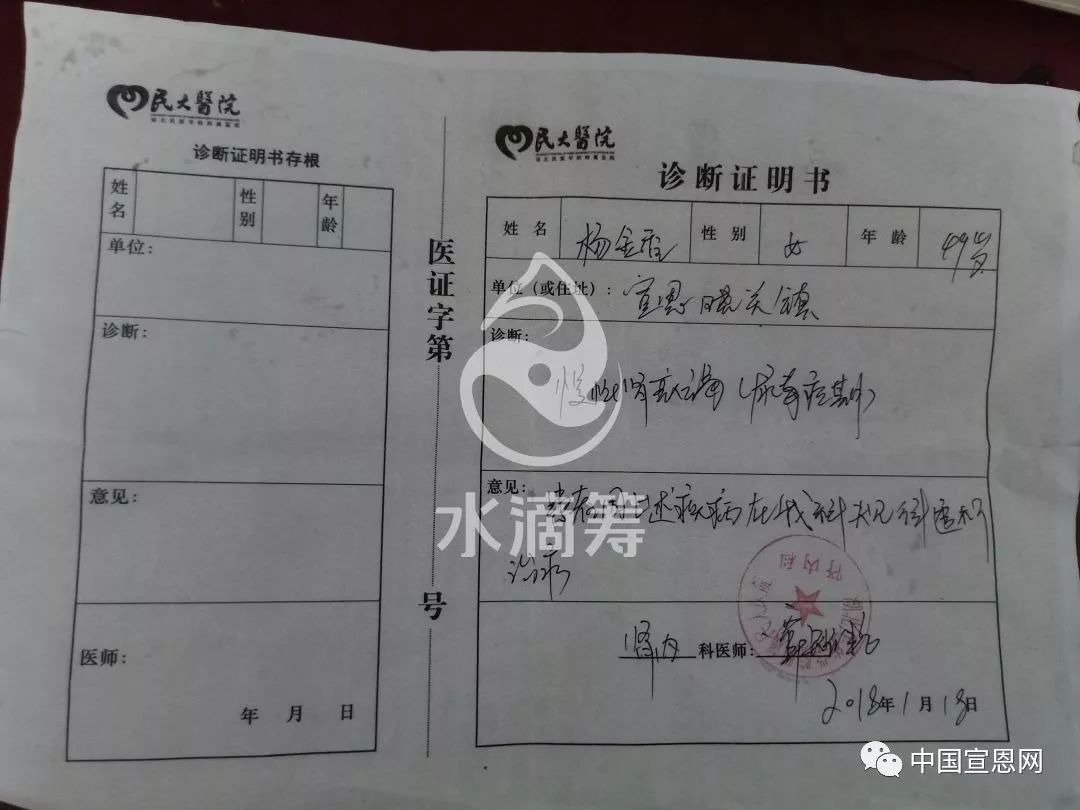 民大醫院
湖北民族学院附属医院
诊断证明书存根
姓名 性别 年龄
单位:
诊断:
意见:
医师:
年 月 日
医证字第 号
民大醫院
湖北民族学院附属医院
诊断证明书
姓 名 杨金 性 别 女 年 龄 49岁
单位(或住址): 宣恩 晓关镇
诊断:
慢性肾衰竭(尿毒症期)
意见:
患者因上述疾病在我科行透析
治疗
肾内科
肾内 科医师:
2018年1月18日
水滴筹
中国宣恩网